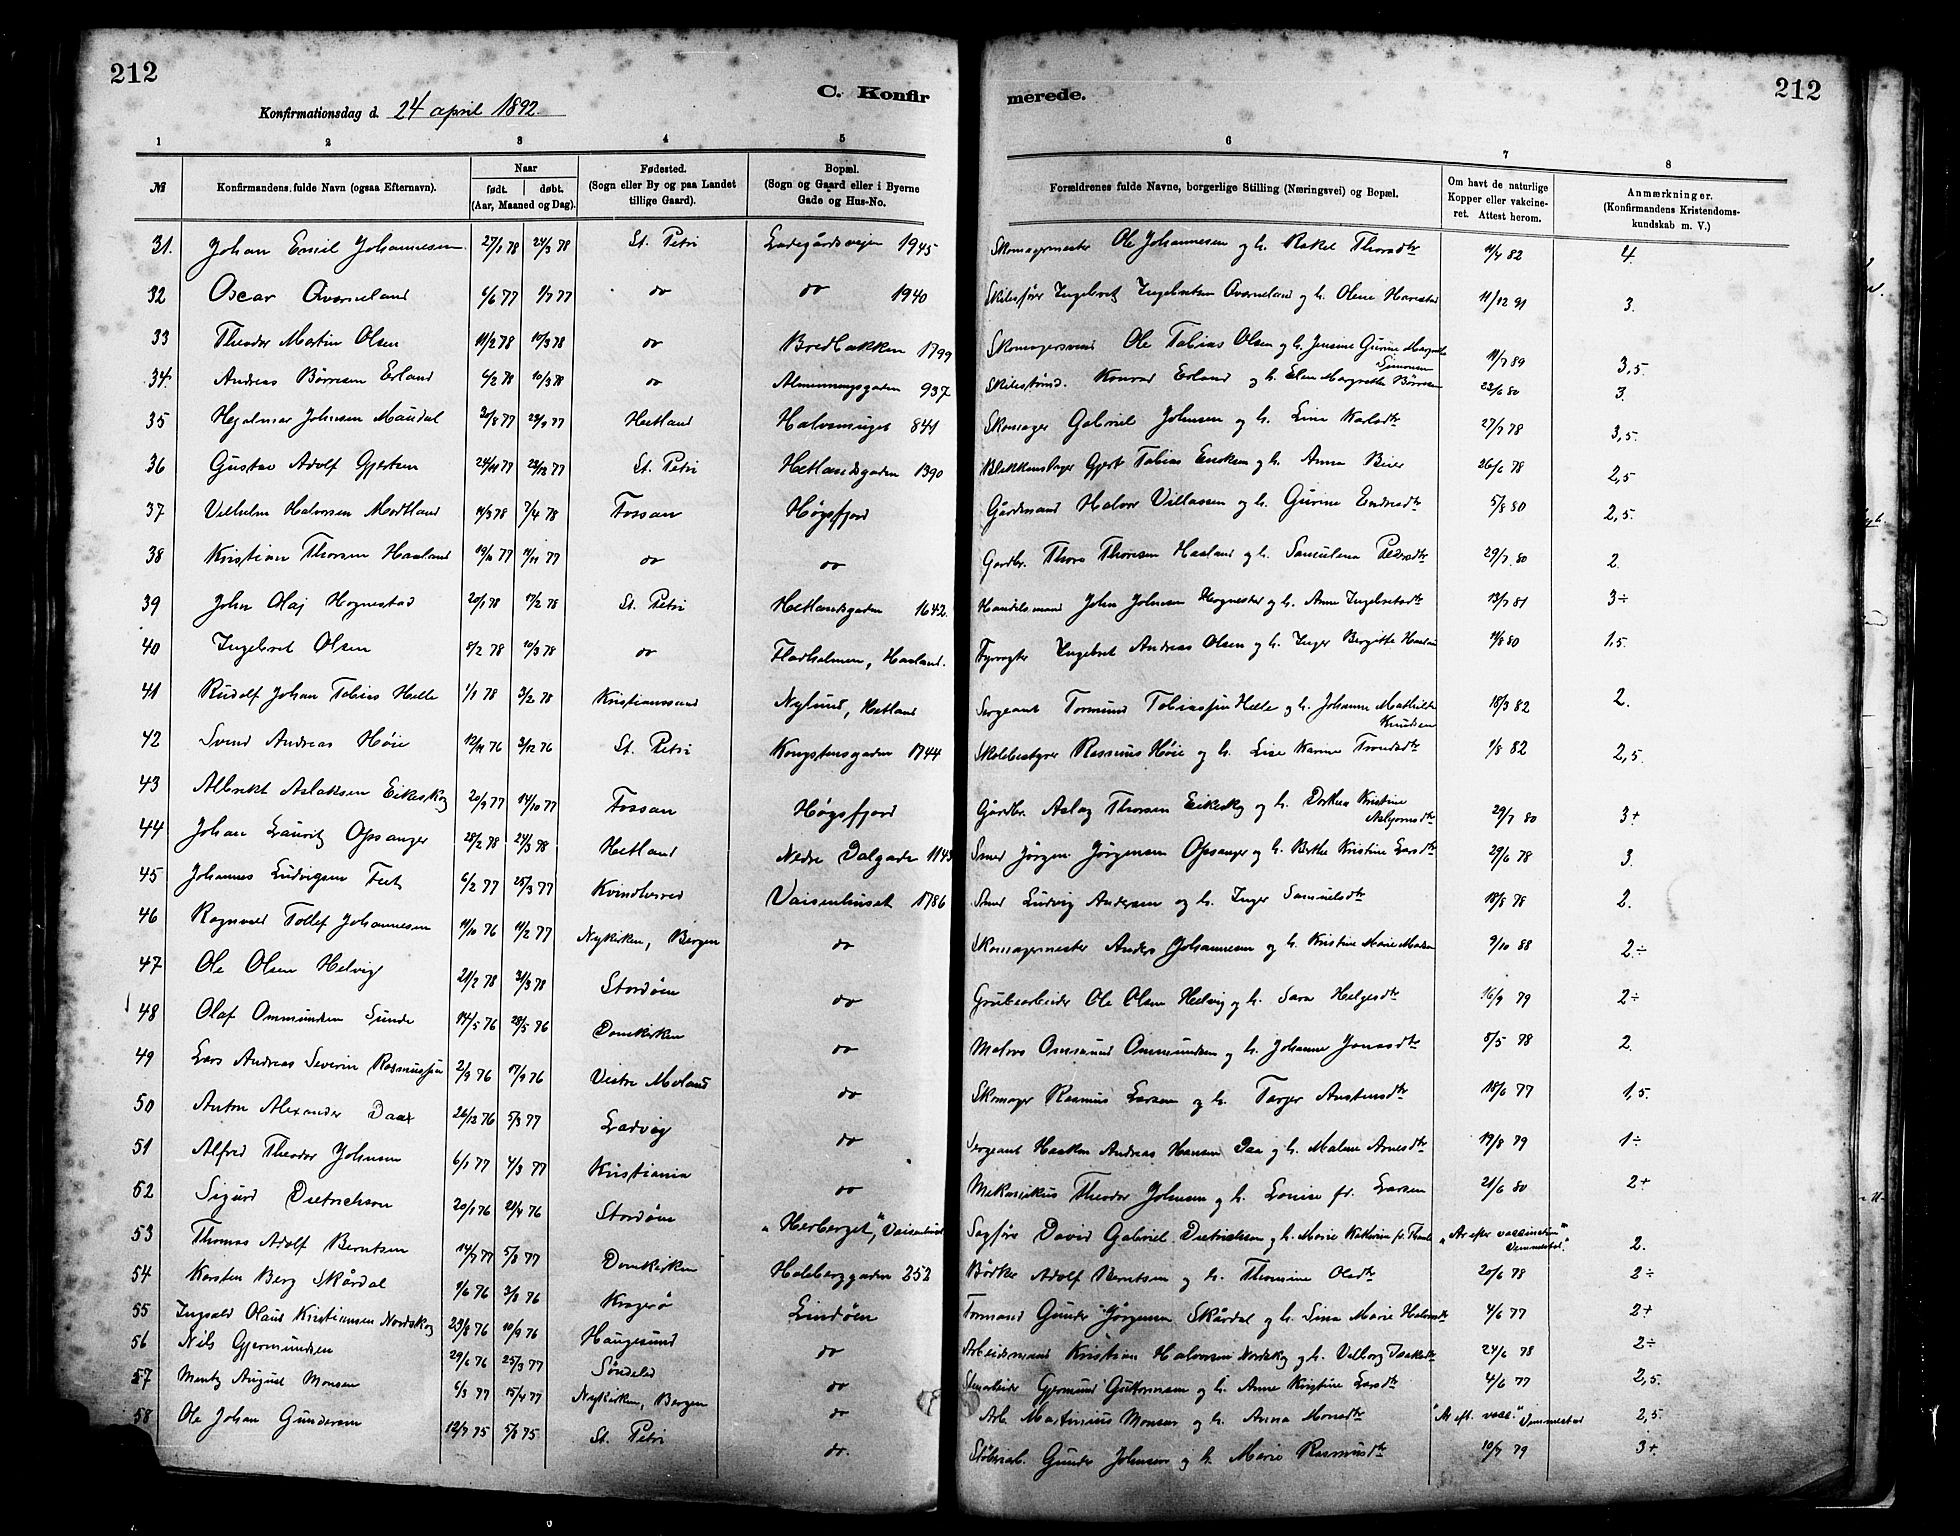 212
C. Konfir
Konfirmationsdag d. 24 april 1892.
1 2 3 4 5
№ Konfirmandens fulde Navn (ogsaa Efternavn). Naar født. døbt. (Aar, Maaned og Dag). Fødested. (Sogn eller By og paa Landet tillige Gaard). Bopæl. (Sogn og Gaard eller i Byerne Gade og Hus-No.
merede.
212
6 7 8
Forældrenes fulde Navne, borgerlige Stilling (Næringsvei) og Bopæl. Om havt de naturlige Kopper eller vakcineret. Attest herom. Anmærkninger. (Konfirmandens Kristendomskundskab m. V.)
31. Johan Emil Johannesen 27/1 78 24/3 78 St. Petri Ladegårdsveien 1945 Skomagermester Ole Johannesen og h. Rakel Thorsdtr 11/7 82 4.
32 Oscar Qværneland 6/6 77 1/7 77 do do 1940 Ingebret Ingebretsen Qværneland og h. Olene 11/12 91 3.
33 Theodor Martin Olsen 11/2 78 17/3 78 do Bredbakken 1799 Skomagersvend Ole Tobias Olsen og h. Jensine Gurine Margrete Simonsen 11/7 89 3,5.
34. Andreas Børresen Erland 6/2 78 10/3 78 do Almenningsgaden 937 Konrad Erland og h. Elen Margrethe Børresen 22/6 80 3.
35 Hjalmar Johnsen Maudal 20/8 77 23/9 77 Hetland 841 Skomager Gabriel Johnsen og h. Line Karlsdtr 27/7 78 3,5.
36 Gustav Adolf Gjertsen 24/11 77 23/12 77 St. Petri Hetlandsgaden 1390 Blikkenslager Gjert Tobias Encksen og h. Anna Beier 26/6 78 2,5
37 Vilhelm Halvorsen Mortland 11/3 78 7/4 78 Fossan Høgsfjord Gårdmand Halvor Villassen og h. Gurine Endresdtr 5/8 80 2,5.
38 Kristian Thorsen Haaland 19/11 77 11/11 77 do do Gardbr. Thore Thoresen Haaland og h. Samuline Pedersdtr 29/7 80 2.
39 John Olaj Hognestad 20/1 78 17/2 78 St. Petri Hetlandsgaden 1642. Handelsmand John Johnsen Hognestad og h. Anne Ingebretsdtr 13/7 81 3÷
40 Ingebret Olsen 8/2 78 10/3 78 do Fladholmen, Haaland. Fyrvogter Ingebret Andreas Olsen og h. Inger Bergitte 11/8 80 1,5.
41 Rudolf Johan Tobias Helle 1/1 78 3/2 78 Kristianssund Nylund, Hetland Sergeant Tormund Tobiassen Helle og h. Johanne Mathilde Knudsen 18/3 82 2.
42 Svend Andreas Høie 12/11 76 3/12 76 St. Petri Kongstensgaden 1744 Skolebestyrer Rasmus Høie og h. Lise Karine Trondsdtr 1/8 82 2,5.
43 Albrekt Aslaksen Eikeskog 20/9 77 14/10 77 Fossan Høgsfjord Gårdbr. Aslag Thorsen Eikeskog og h. Dorthea Kristine Asbjørnsdtr 29/7 80 3+
44 Johan Lauritz Opsanger 28/2 78 24/3 78 Hetland Nedre Dalgade 1143 Smed Jørgen Jørgensen Opsanger og h. Berthe Kristine Larsdtr 29/6 78 3.
45 Johannes Ludvigsen Feet 6/2 77 25/3 77 Kvindherred Vaisenhuset 1786 Smed Ludvig Andersen og h. Inger Samuelsdtr 18/8 78 2.
46 Ragnvald Tollef Johannesen 11/10 76 11/2 77 Nykirken, Bergen do Skomagermester Anders Johannesen og h. Kristine Marie Madsen 9/10 88 2÷
47 Ole Olsen Helvig 21/2 78 31/3 78 Stordøen do Grubearbeider Ole Olsen Helvig og h. Sara Helgesdtr 16/9 79 2÷
48 Olaf Ommundsen Sunde 14/5 76 28/5 76 Domkirken do Matros Ommund Ommundsen og h. Johanne Jonasdtr 5/5 78 2.
49 Lars Andreas Severin Rasmussen 2/9 76 17/9 76 Vestre Moland do Skomager Rasmus Larsen og h. Targer Austensdtr 18/6 77 1,5.
50 Anton Alexander Daae 26/12 76 5/3 77 Ladvig do Sergeant Haaken Andreas Hansen Daa og h. Malene Arnesdtr 19/8 79 1÷
51 Alfred Theodor Johnsen 6/1 77 4/3 77 Kristiania do Mekanikus Theodor Johnsen og h. Louise fr. Larsen 21/6 80 2+
52 Sigurd Dietrichson 20/1 76 21/4 76 Stordøen "Herberget", Vaisenhuset Sagfører David Gabriel Dietrichson og h. Marie Kathrine fr. "Ar efter vaccination" 2.
53 Thomas Adolf Berntsen 14/7 77 5/8 77 Domkirken Holbergsgaden 252 Bødker Adolf Berntsen og h. Thomine Olsdtr 20/6 78 2÷
54 Karsten Berg Skårdal 1/6 76 3/8 76 Kragerø Lindøen Formand Gunder Jørgensen Skårdal og h. Lina Marie 4/6 77 2+
55 Ingvald Olaus Kristiansen Nordskog 23/8 76 10/9 76 Haugesund do Arbeidsmand Kristian Halvorsen Nordskog og h. Valborg Isaksdtr 24/6 78 2÷
56 Nils Gjermundsen 29/6 76 25/3 77 Søndeled do Stenarbeider Gjermund Guttormsen og h. Anne Kristine Larsdtr 4/6 77 2,5.
57 Mentz August Monsen 6/3 77 15/4 77 Nykirken, Bergen do Arb. Martinius Monsen og h. Anna Monsdtr "Ar eft. vacc." 2,5.
58 Ole Johan Gundersen 12/7 75 5/8 75 St. Petri do. Gunder Johnsen og h. Marie Rasmusdtr 10/7 79 3+.